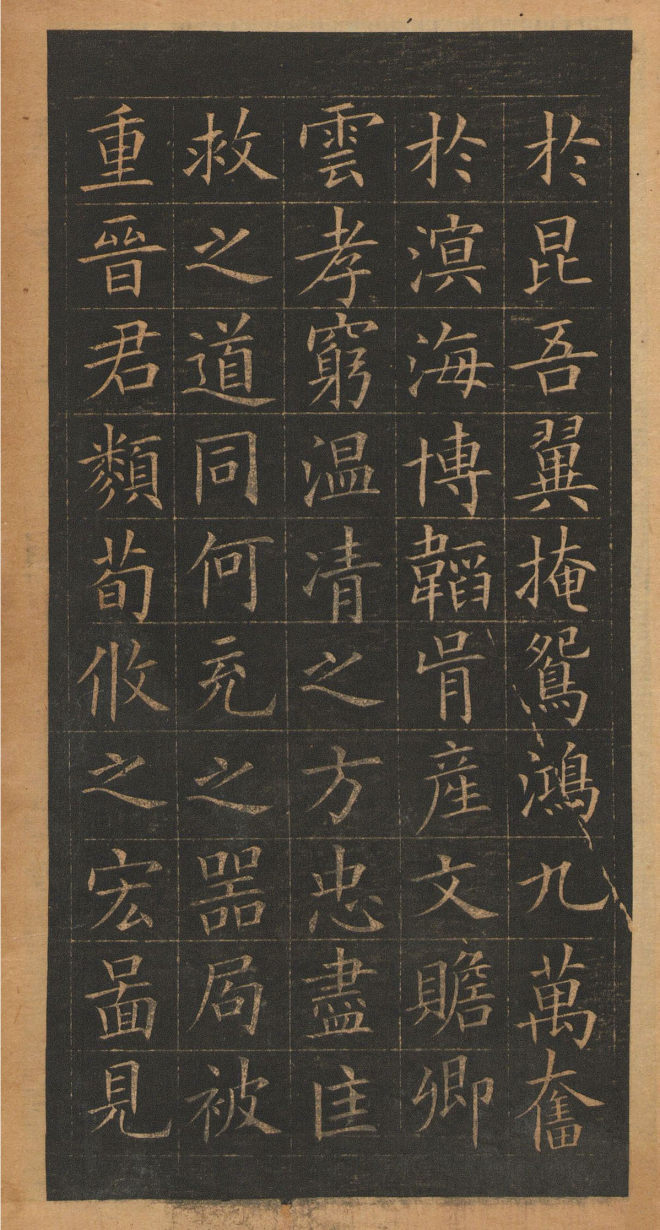 於昆吾翼掩鴛鴻九萬奮
於溟海博韜胥産文贍卿
雲孝窮温凊之方忠盡匡
救之道同何充之器局被
重晉君類荀攸之宏圖見